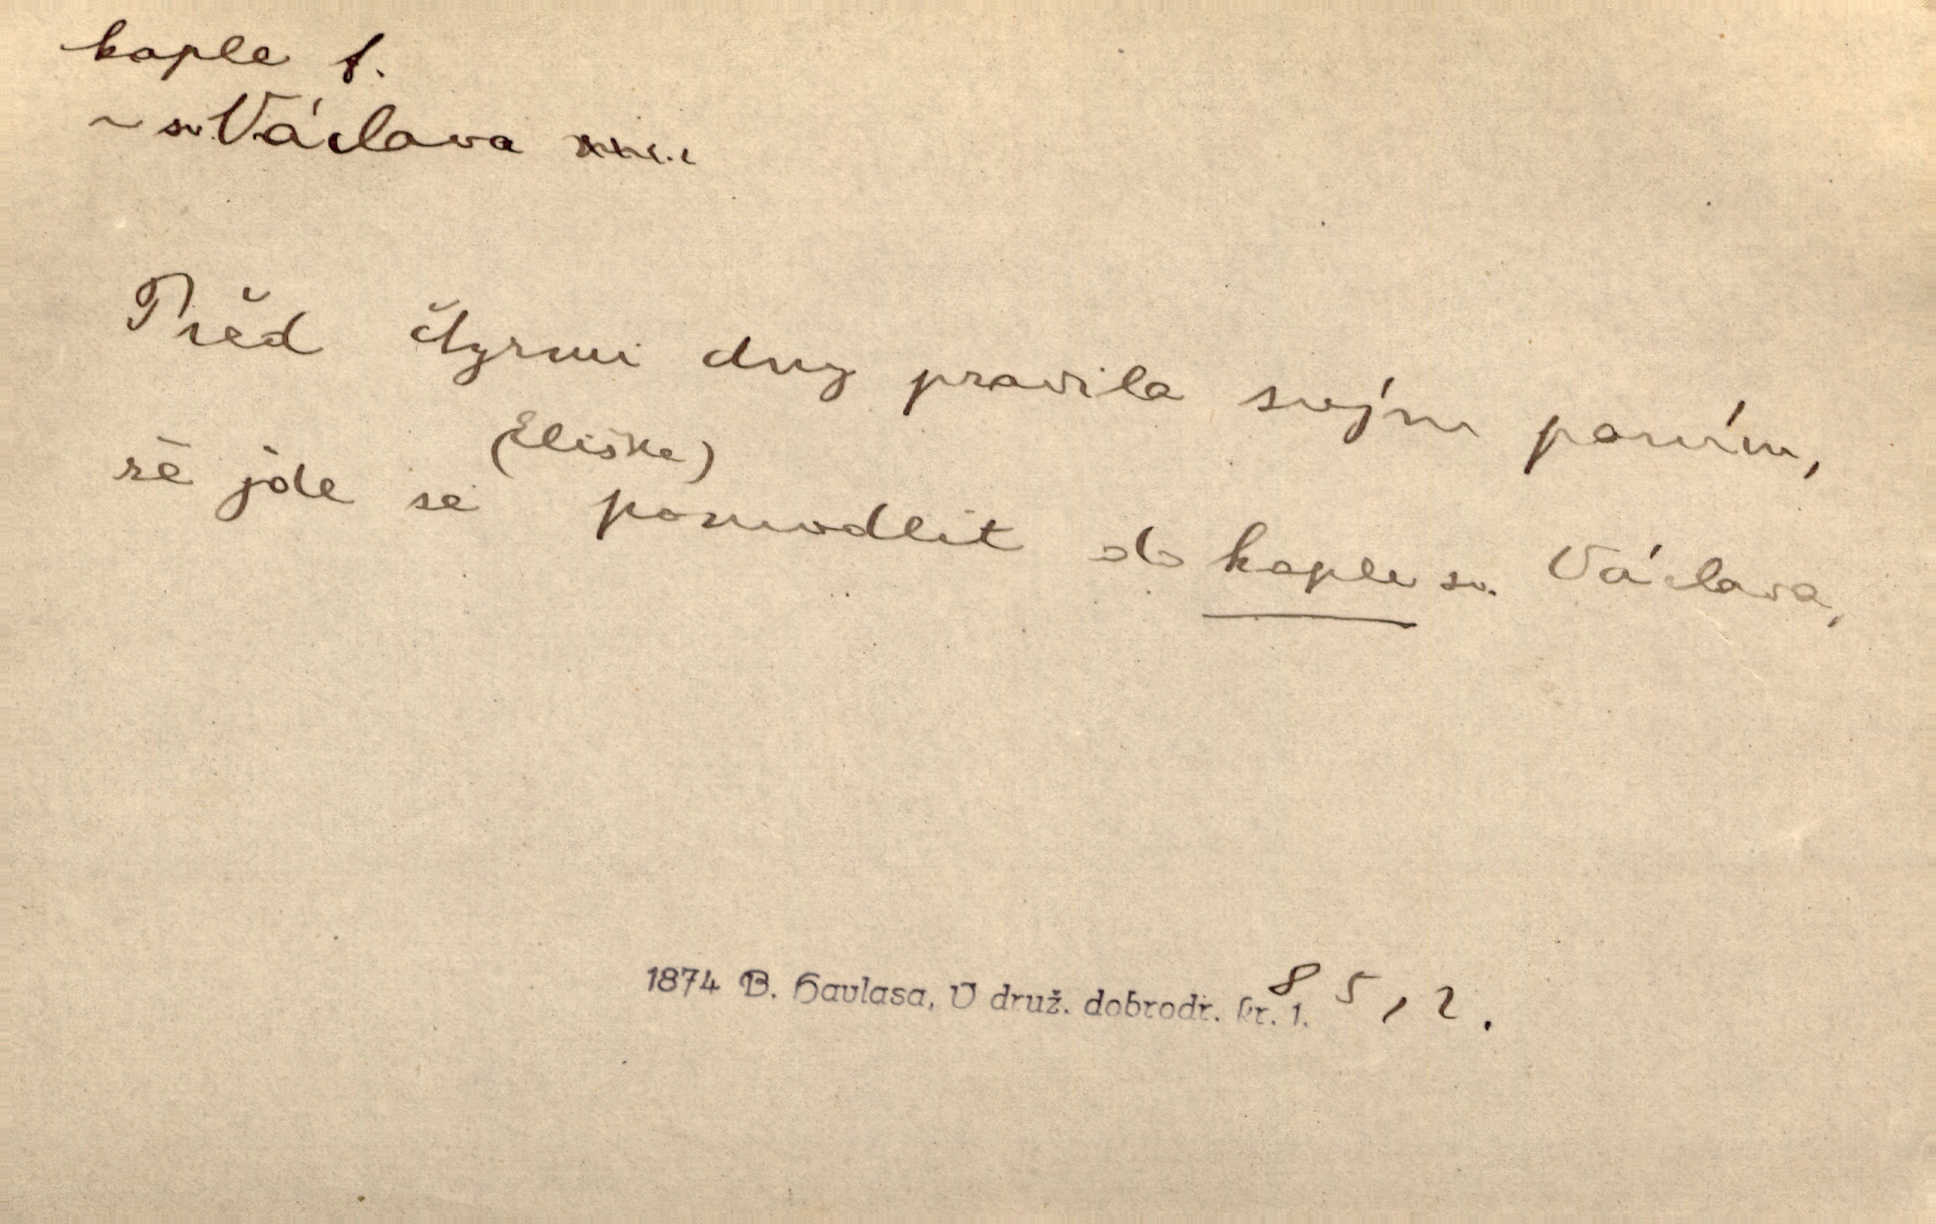 kaple f.
~ sv. Václava
Před čtyrmi dny pravila svým paním,
že jde se (Eliška) pomodlit do kaple sv. Václava,
1874 B. Havlasa, V druž. dobrodr. kr. 1. 85, 2.